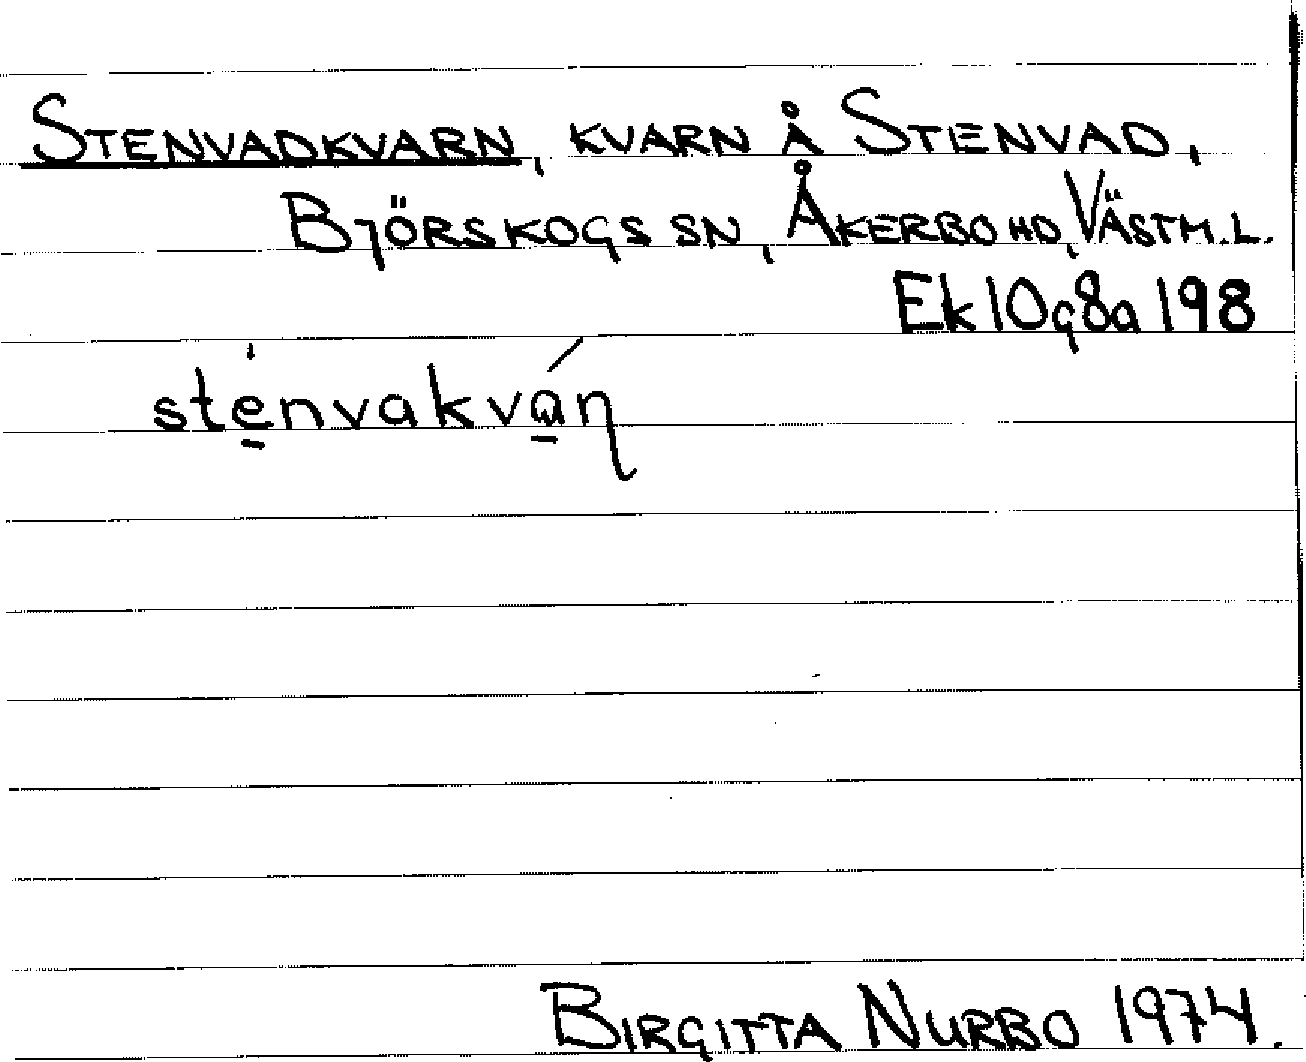 STENVADKVARN, KVARN Å STENVAD,
BJÖRSKOGS SN, ÅKERBO HD, VÄSTM.L.
Ek 10g8a 198
stenvakván
BIRGITTA NURBO 1974.